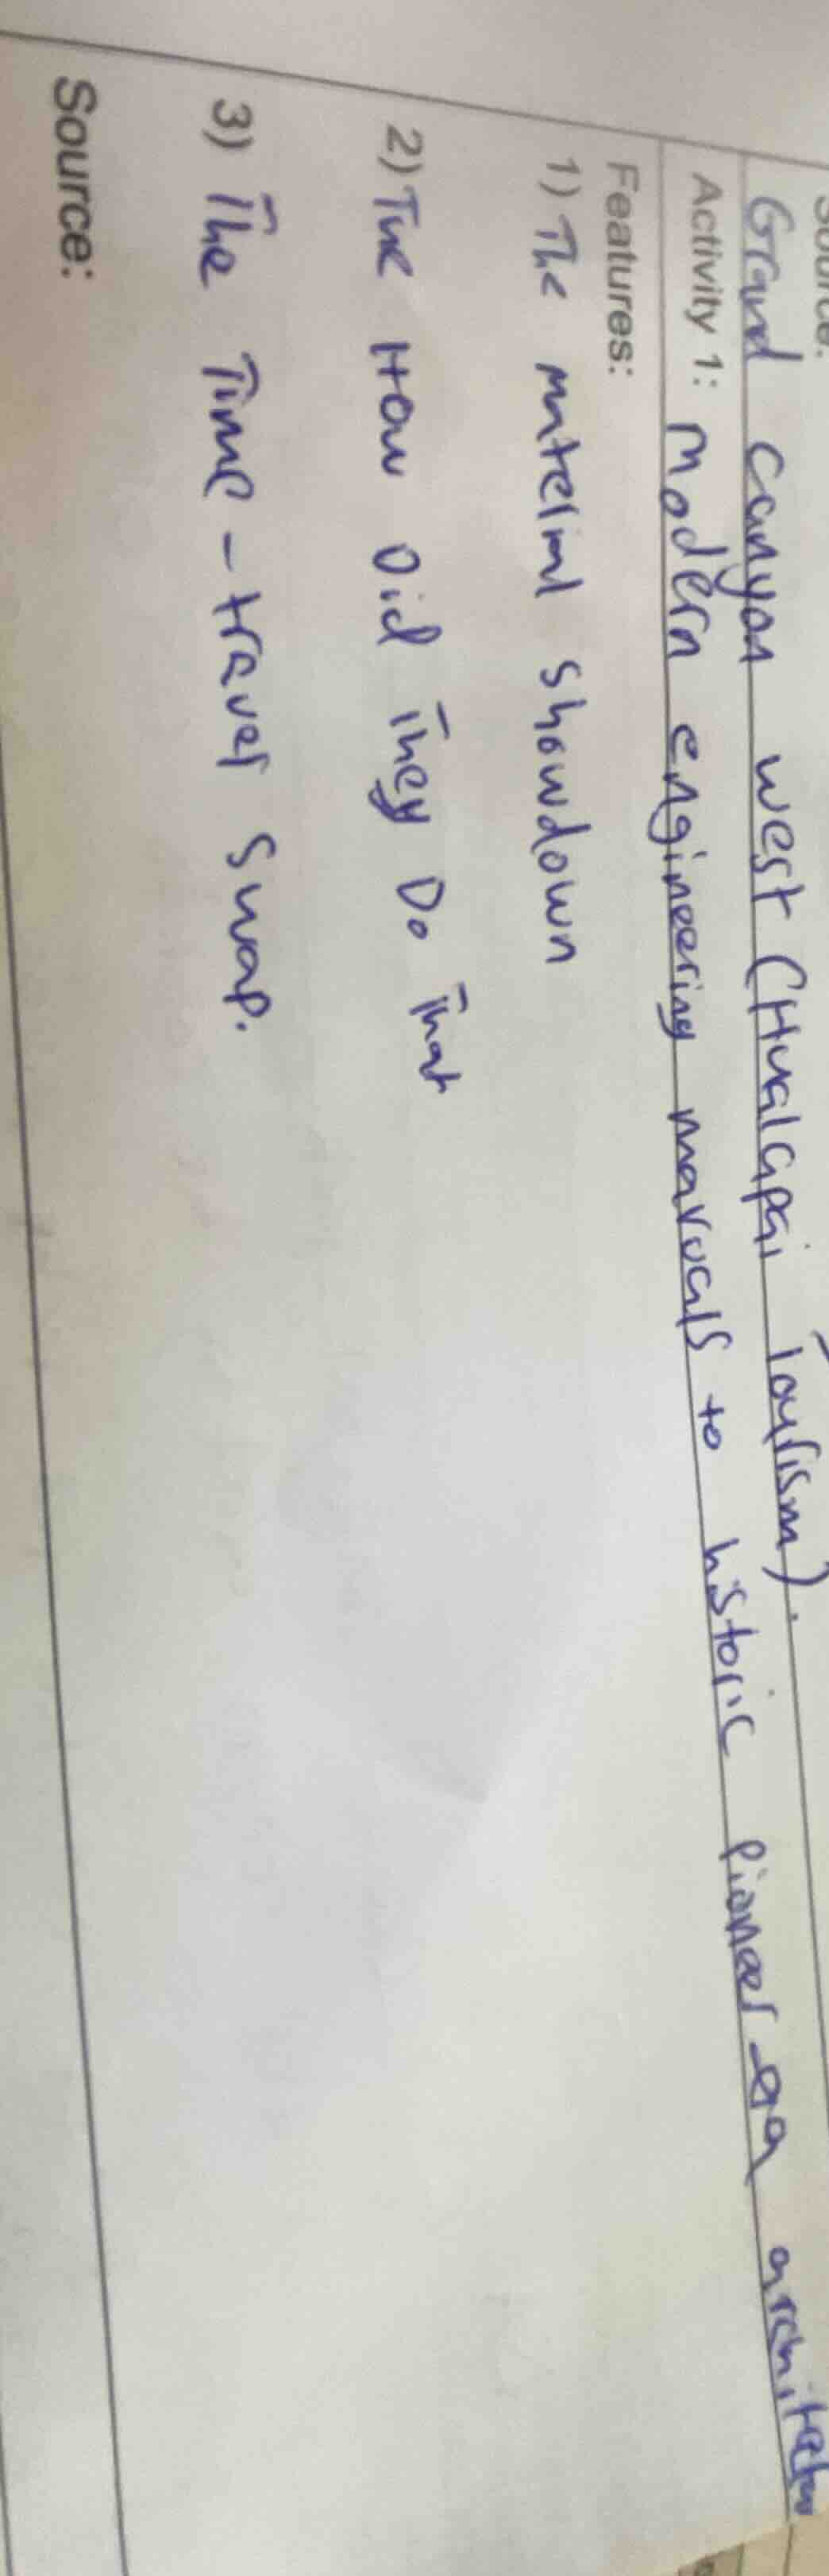 Source:
Grand canyon west (Hualapai Tourism).
Activity 1: Modern engineering marvals to historic Pioneer-era
Features:
1) The material showdown
2) The How Did They Do That
3) The Time-travel Swap.
Source: